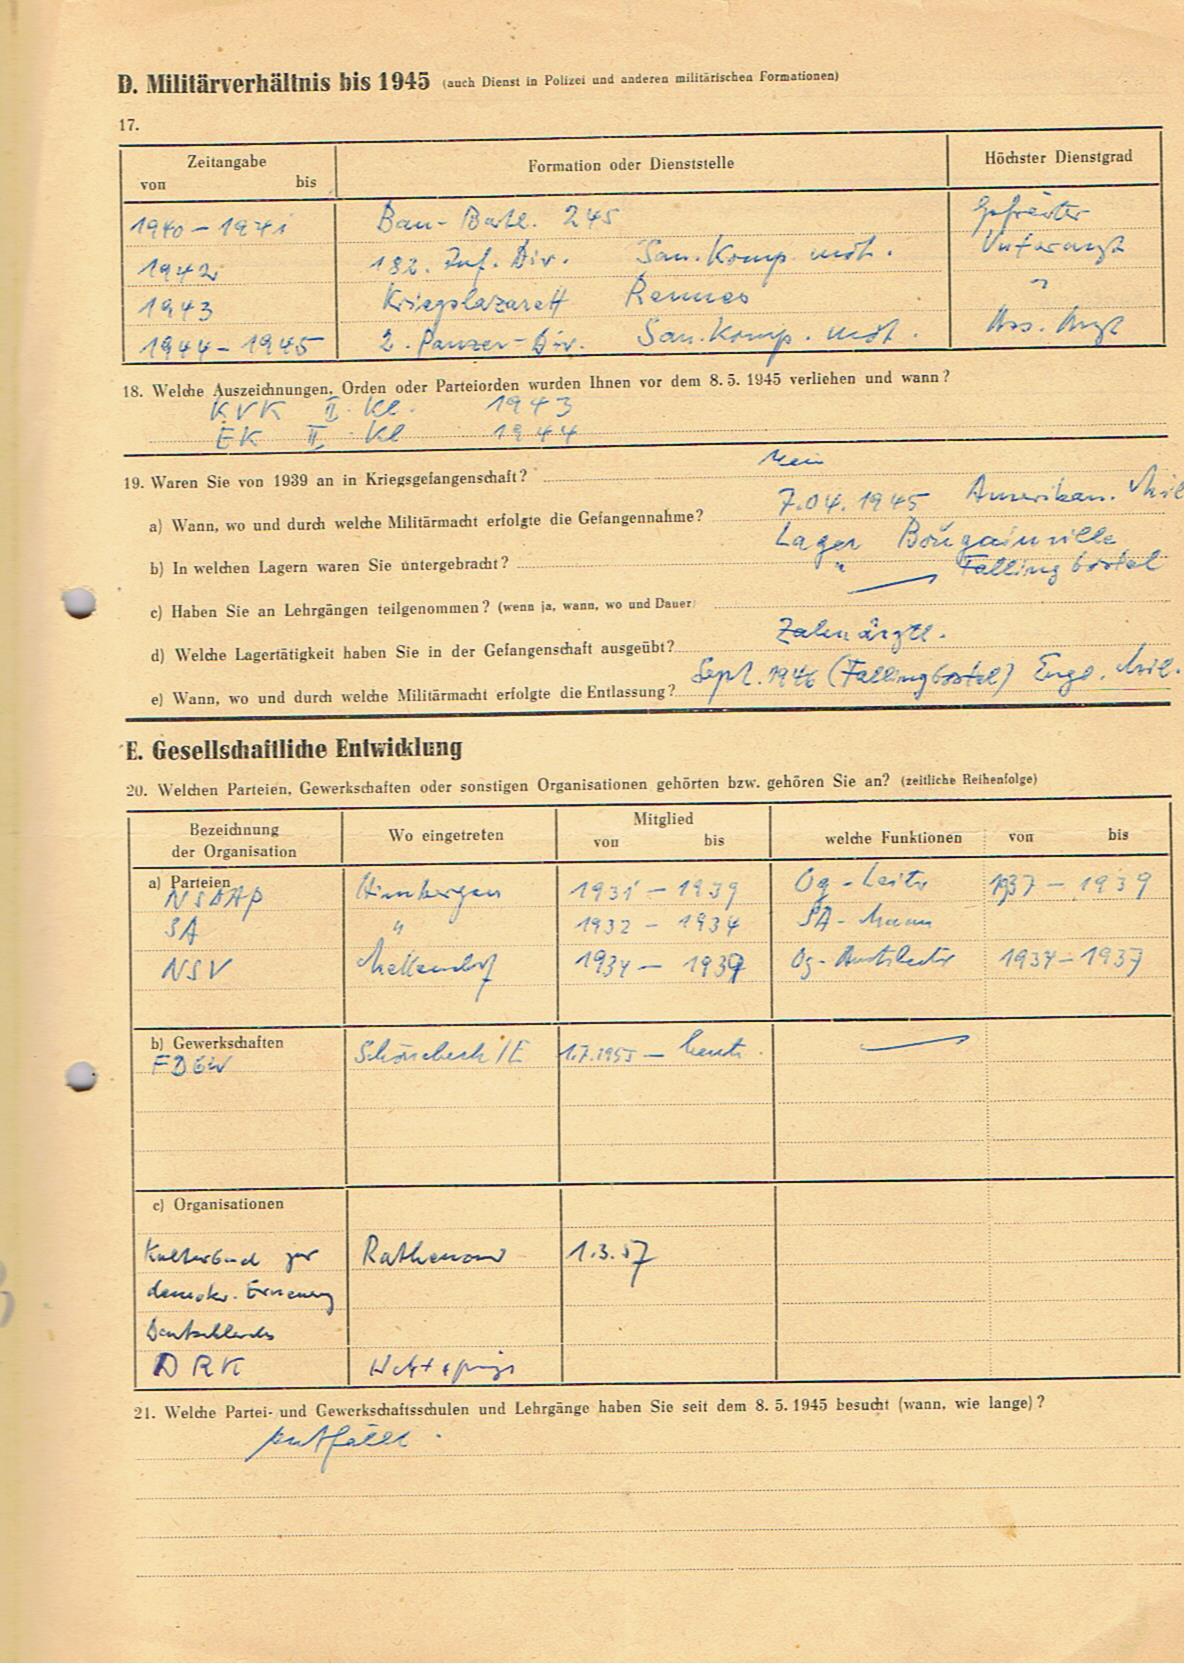 D. Militärverhältnis bis 1945 (auch Dienst in Polizei und anderen militärischen Formationen)
17.
Zeitangabe
von bis
Formation oder Dienststelle
Höchster Dienstgrad
1940 – 1941 Bau-Batl. 245 Gefreiter
1942 182. Inf. Div. San. Komp. mot. Unterarzt
1943 Kriegslazarett Rennes "
1944 – 1945 2. Panzer-Div. San. Komp. mot. Ass. Arzt
18. Welche Auszeichnungen, Orden oder Parteiorden wurden Ihnen vor dem 8. 5. 1945 verliehen und wann?
KVK II. Kl. 1943
EK II. Kl 1944
19. Waren Sie von 1939 an in Kriegsgefangenschaft? Nein
a) Wann, wo und durch welche Militärmacht erfolgte die Gefangennahme? 7.04.1945 Amerikan. Mil
b) In welchen Lagern waren Sie untergebracht? Lager Bougainville
" Fallingbostel
c) Haben Sie an Lehrgängen teilgenommen? (wenn ja, wann, wo und Dauer)
d) Welche Lagertätigkeit haben Sie in der Gefangenschaft ausgeübt? Zahnärztl.
e) Wann, wo und durch welche Militärmacht erfolgte die Entlassung? Sept. 1946 (Fallingbostel) Engl. Mil.
E. Gesellschaftliche Entwicklung
20. Welchen Parteien, Gewerkschaften oder sonstigen Organisationen gehörten bzw. gehören Sie an? (zeitliche Reihenfolge)
Bezeichnung der Organisation
Wo eingetreten
Mitglied
von bis
welche Funktionen von bis
a) Parteien
NSDAP Himbergen 1931 – 1939 Og-Leiter 1937 – 1939
SA " 1932 – 1934 SA-Mann
NSV Mellendorf 1934 – 1939 Og-Amtsleiter 1934 – 1937
b) Gewerkschaften
FDGB Schönebeck/E 1.7.1955 – heute.
c) Organisationen
Kulturbund zur Rathenow 1.3.57
demokr. Erneuerung
Deutschlands
DRK Uchtspringe
21. Welche Partei- und Gewerkschaftsschulen und Lehrgänge haben Sie seit dem 8. 5. 1945 besucht (wann, wie lange)?
entfällt.